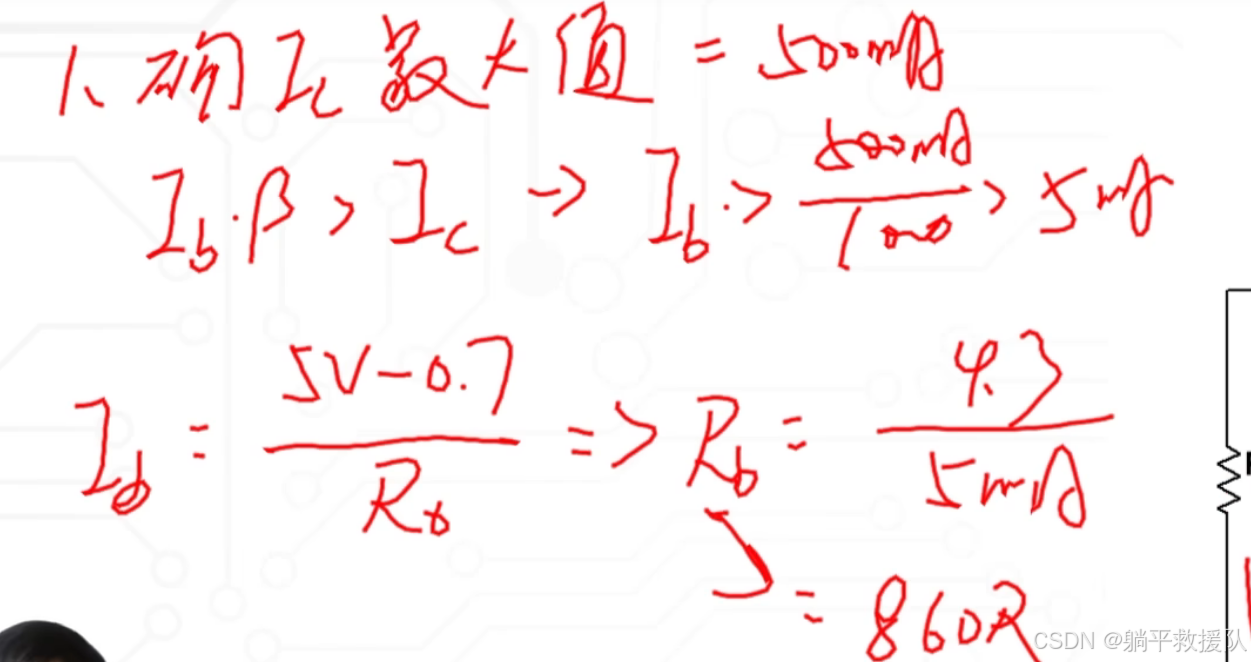 1、确Ic最大值 = 500mA
Ib·β > Ic → Ib·> 500mA/100 > 5mA
Ib = 5V-0.7/Rb => Rb = 4.3/5mA
= 860Ω
CSDN @躺平救援队